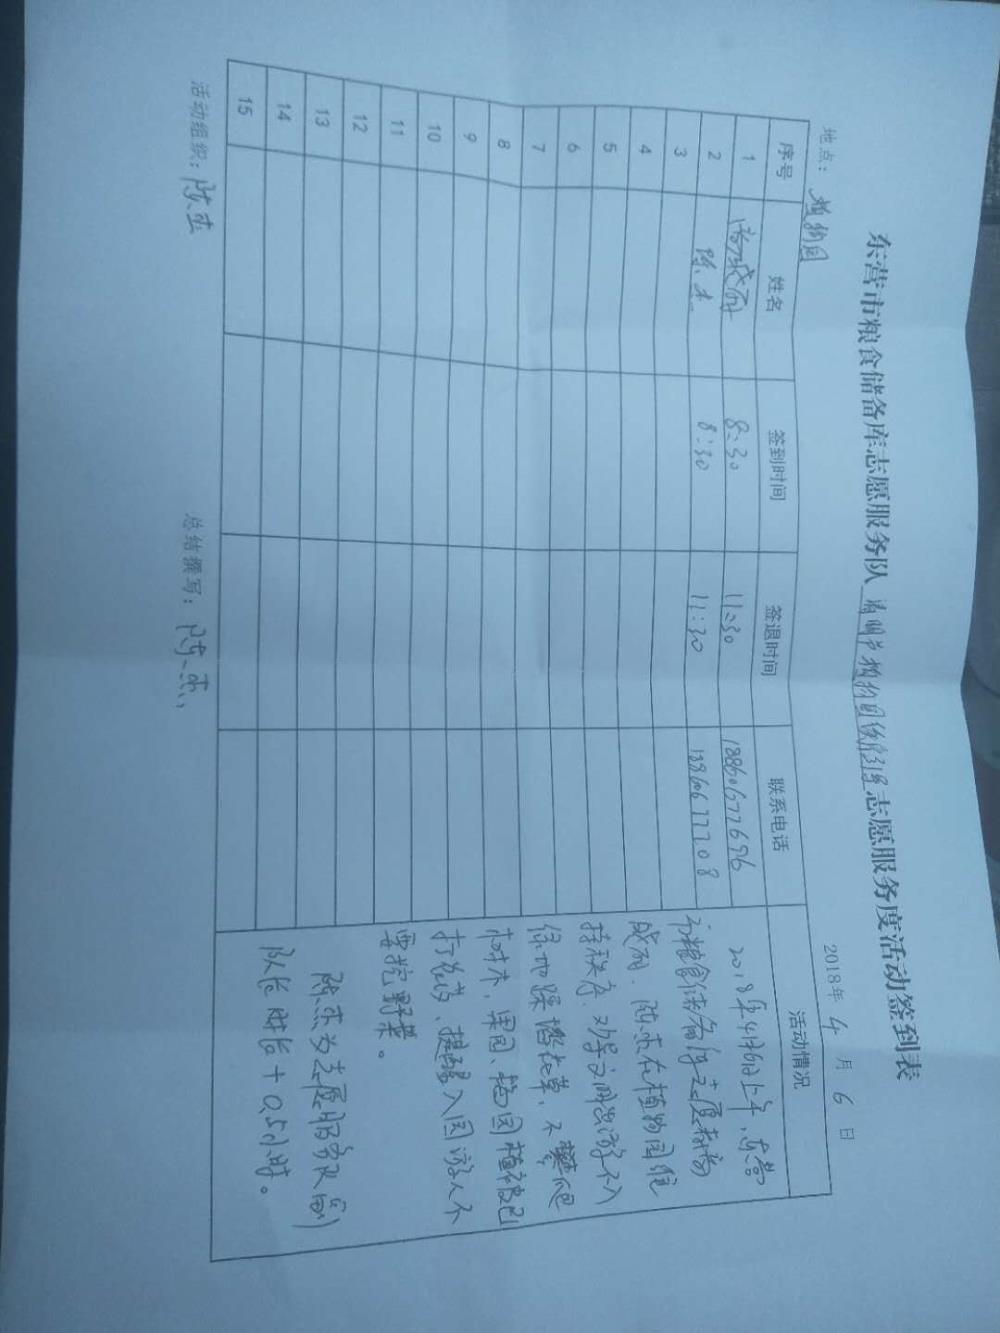 东营市粮食储备库志愿服务队 清明节植物园秩序引导 志愿服务度活动签到表
地点：植物园 2018年 4 月 6 日
序号 姓名 签到时间 签退时间 联系电话 活动情况
1 8:30 11:30 18860677696
2 陈杰 8:30 11:30 18860677708
3
4
5
6
7
8
9
10
11
12
13
14
15
2018年4月6日上午，东营
市粮食储备库志愿者高
成河、陈杰在植物园维
持秩序，劝导文明出游不入
绿地踩踏花草，不攀爬
树木，果园、梅园植被已
打药，提醒入园游人不
要挖野菜。
陈杰为志愿服务队副
队长 时长+0.5小时。
活动组织：陈杰 总结撰写：陈杰